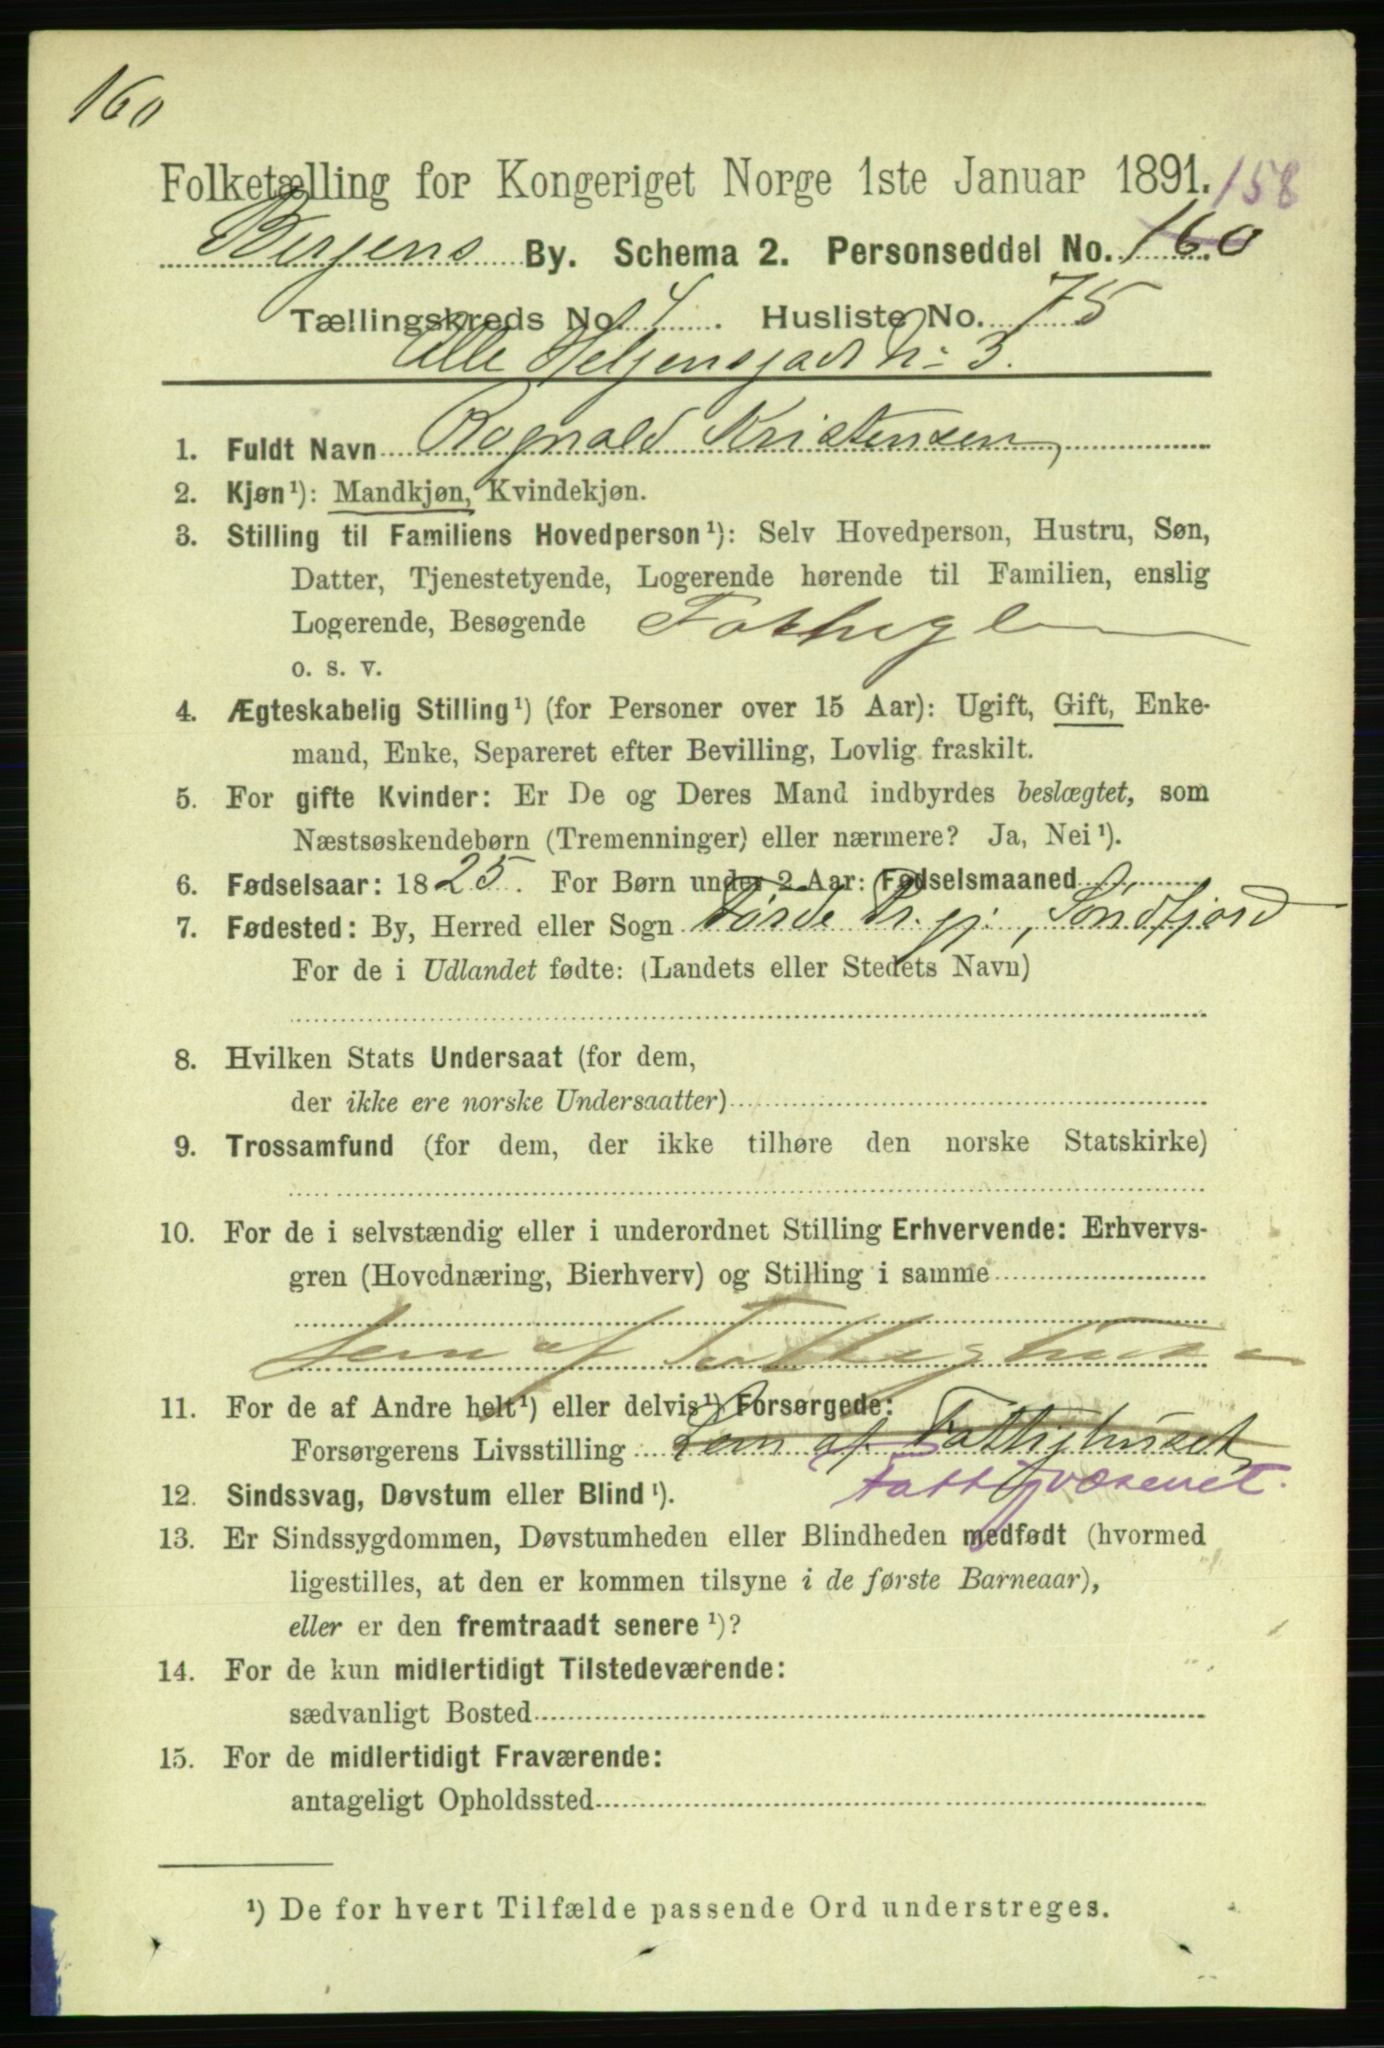 160
Folketælling for Kongeriget Norge 1ste Januar 1891. 158
Bergens By. Schema 2. Personseddel No. 160
Tællingskreds No. 4. Husliste No. 75
Alle Helgensgade No 3.
1. Fuldt Navn Rognald Kristensen
2. Kjøn¹): Mandkjøn, Kvindekjøn.
3. Stilling til Familiens Hovedperson¹): Selv Hovedperson, Hustru, Søn,
Datter, Tjenestetyende, Logerende hørende til Familien, enslig
Logerende, Besøgende Fattigl
o. s. v.
4. Ægteskabelig Stilling¹) (for Personer over 15 Aar): Ugift, Gift, Enke-
mand, Enke, Separeret efter Bevilling, Lovlig fraskilt.
5. For gifte Kvinder: Er De og Deres Mand indbyrdes beslægtet, som
Næstsøskendebørn (Tremenninger) eller nærmere? Ja, Nei¹).
6. Fødselsaar: 1825. For Børn under 2 Aar: Fødselsmaaned
7. Fødested: By, Herred eller Sogn Førde Pr.gj., Søndfjord
For de i Udlandet fødte: (Landets eller Stedets Navn)
8. Hvilken Stats Undersaat (for dem,
der ikke ere norske Undersaatter)
9. Trossamfund (for dem, der ikke tilhøre den norske Statskirke)
10. For de i selvstændig eller i underordnet Stilling Erhvervende: Erhvervs-
gren (Hovednæring, Bierhverv) og Stilling i samme
Lem af Fattighuset
11. For de af Andre helt¹) eller delvis¹) Forsørgede:
Forsørgerens Livsstilling Lem af Fattighuset
Fattigvæsenet.
12. Sindssvag, Døvstum eller Blind¹).
13. Er Sindssygdommen, Døvstumheden eller Blindheden medfødt (hvormed
ligestilles, at den er kommen tilsyne i de første Barneaar),
eller er den fremtraadt senere¹)?
14. For de kun midlertidigt Tilstedeværende:
sædvanligt Bosted
15. For de midlertidigt Fraværende:
antageligt Opholdssted
¹) De for hvert Tilfælde passende Ord understreges.